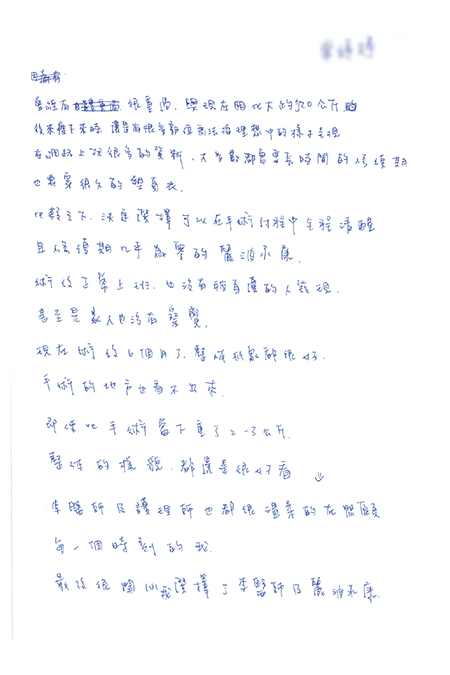 曾經有很重過, 與現在相比大約50公斤
後來瘦下來時, 還是有很多部位無法有理想中的樣子呈現
在網路上找很多的資料, 大多數都需要長時間的修復期
也要穿很久的塑身衣.
比較之下, 決定選擇可以在手術過程中全程清醒
且修復期幾乎為零的麗池永康.
術後了算上班, 也沒有朋友有人發現.
甚至是家人也沒有察覺.
現在術後6個月了, 整體狀象都很好.
手術的地方也看不出來.
即使比手術當下重了2-3公斤.
整体的樣貌, 都還是很好看
李醫師及護理師也都很溫柔的在照顧
每一個時刻的我.
最後很開心我選擇了李醫師及麗池永康.